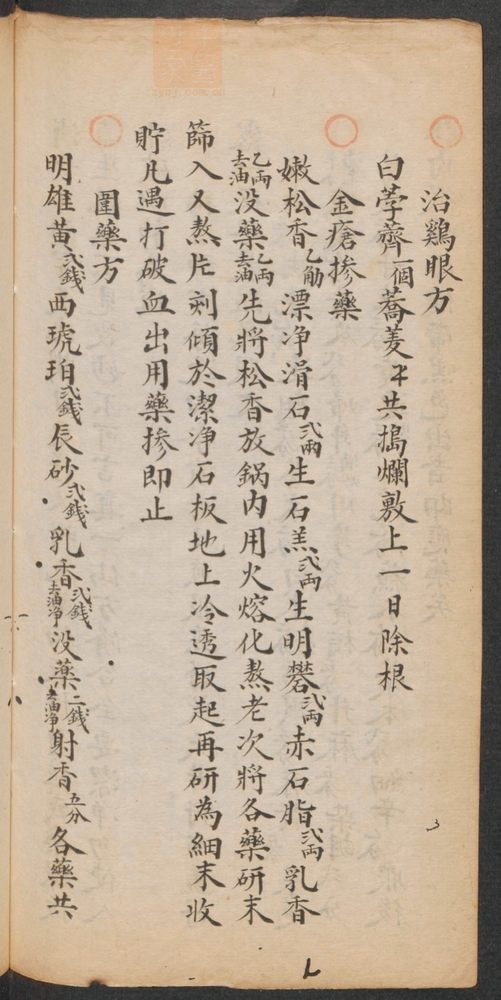 治鷄眼方
白荸薺一個蕎麦卆共搗爛敷上一日除根
金瘡摻藥
嫩松香乙觔漂净滑石弍兩生石羔弍兩生明礬弍兩赤石脂弍兩乳香
乙兩去油没藥乙兩去油先將松香放鍋内用火熔化熬老次將各藥研末
篩入又熬片刻傾於潔净石板地上冷透取起再研為細末收
貯凡遇打破血出用藥摻即止
圍藥方
明雄黄弍錢西琥珀弍錢辰砂弍錢乳香弍錢去油净没藥二錢去油净射香五分各藥共